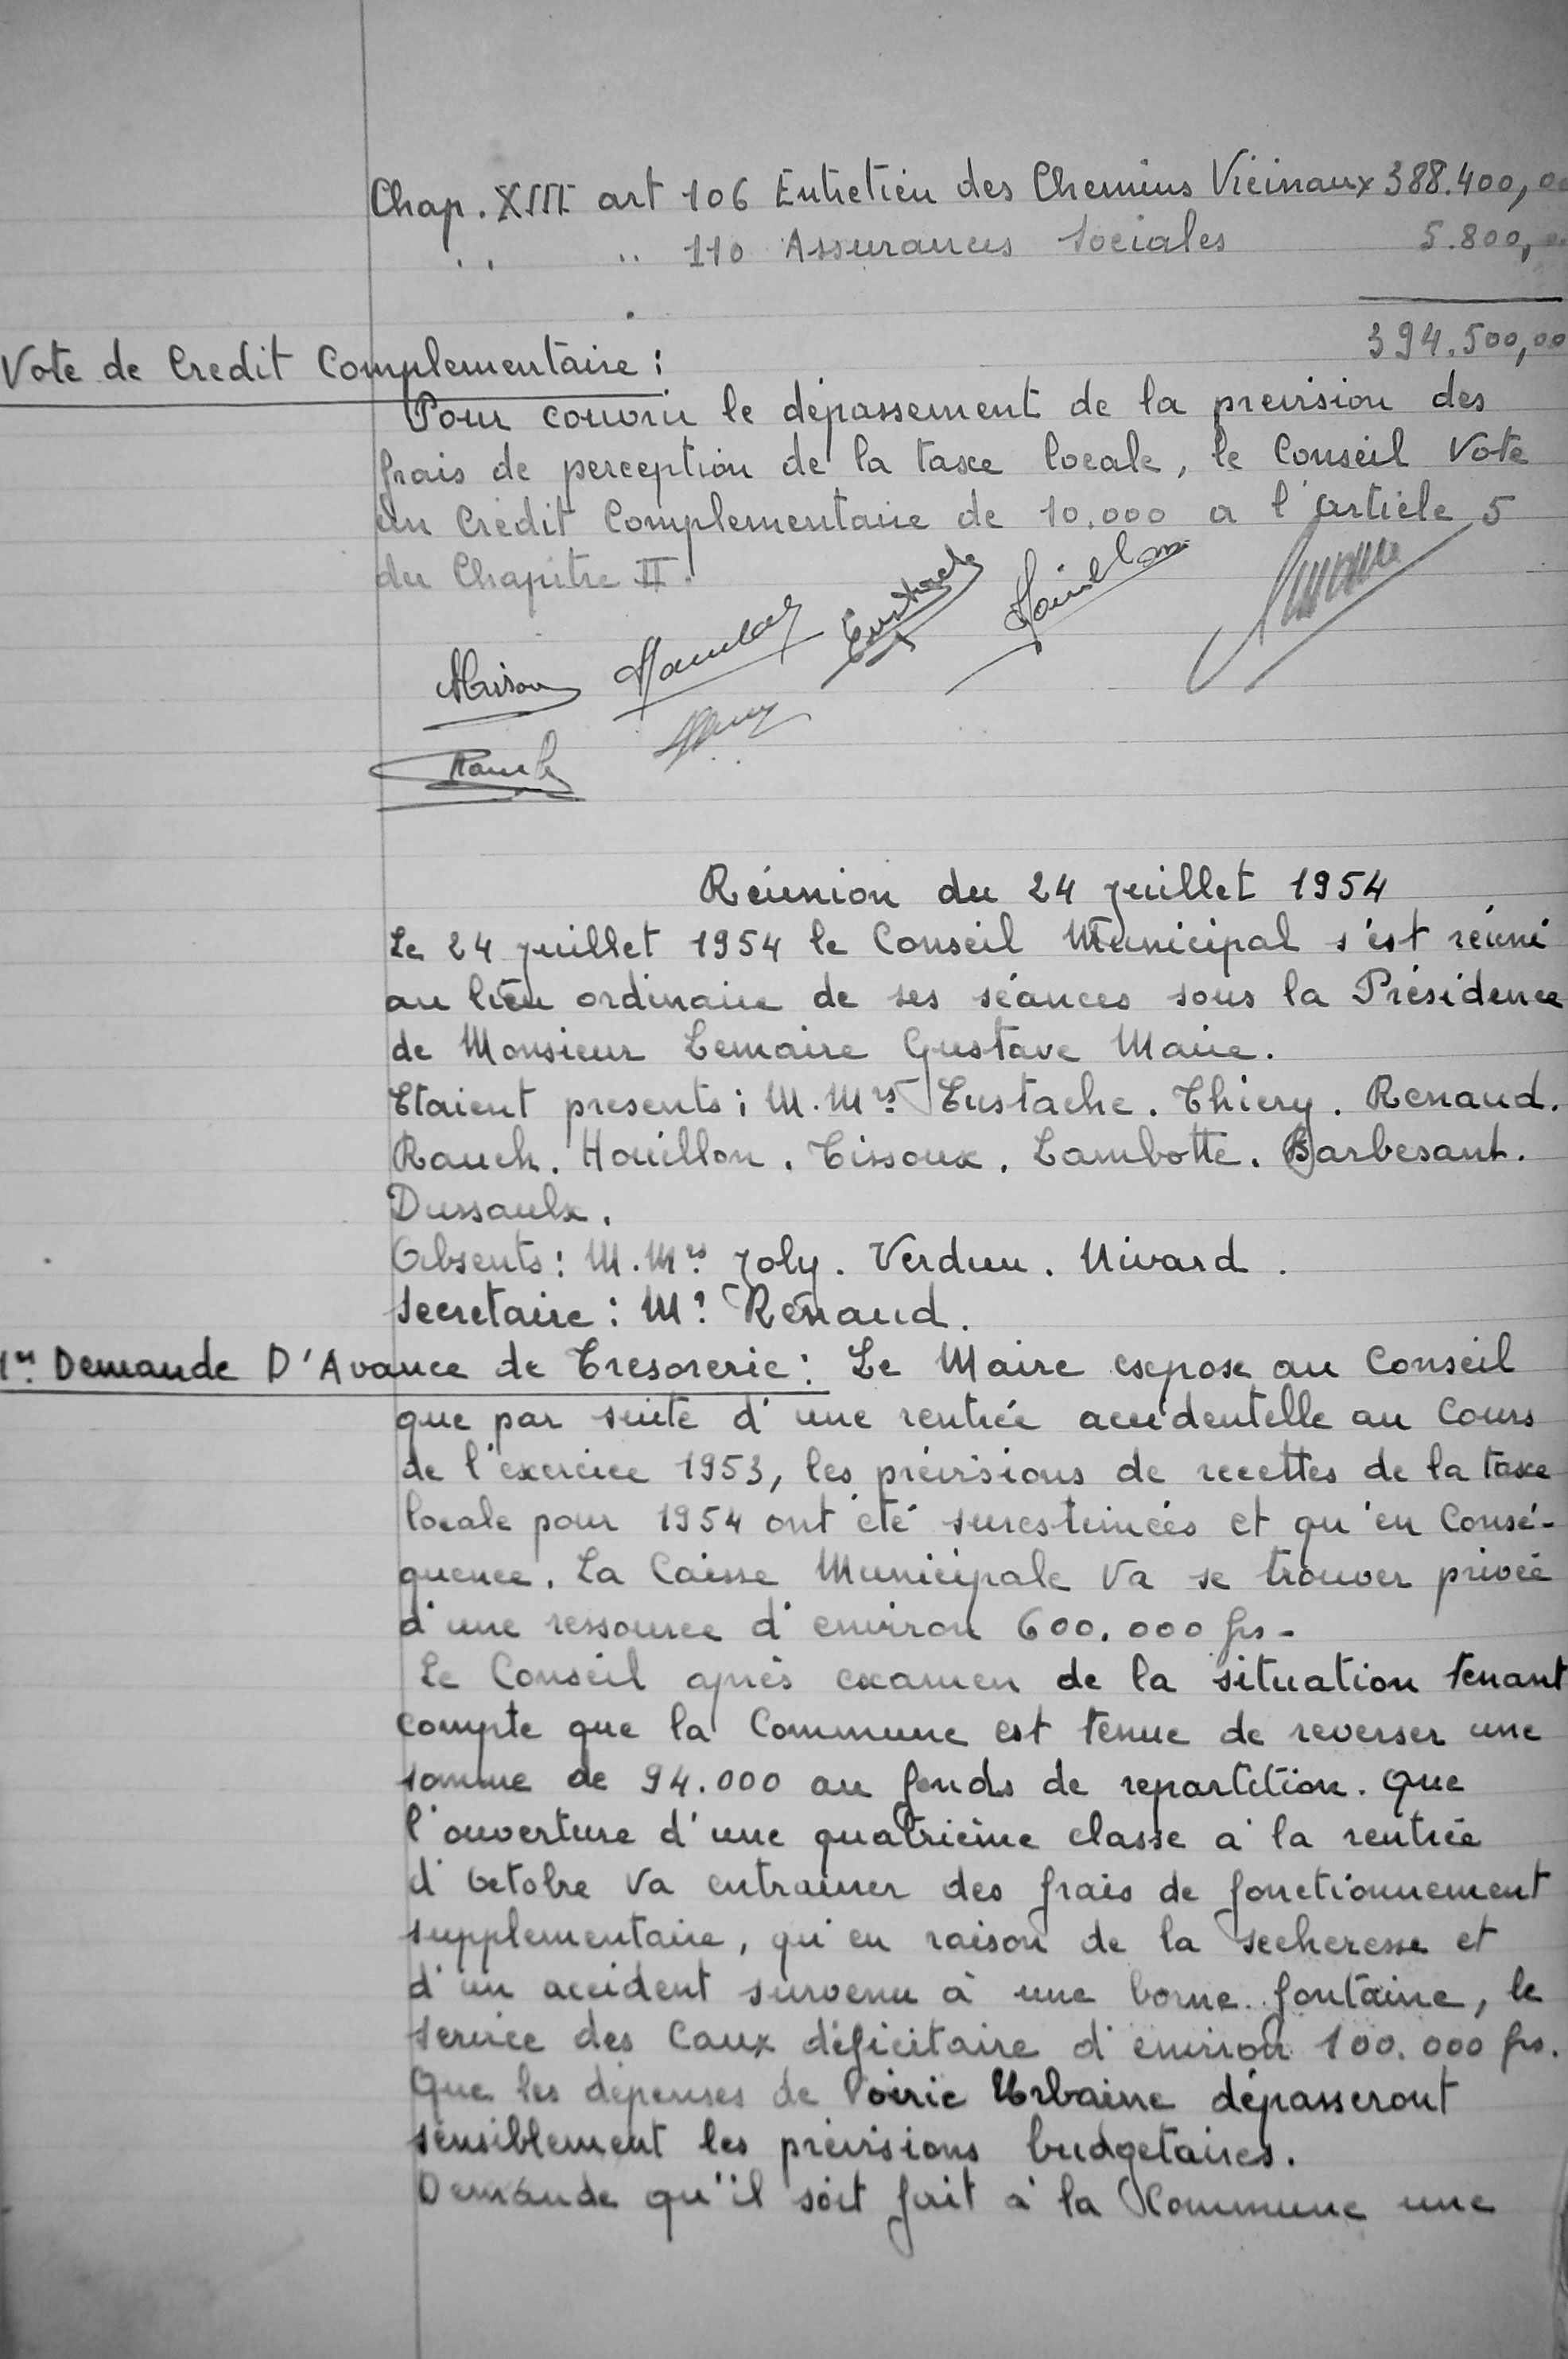 Chap. XIII art 106 Entretien des Chemins Vicinaux 388.400,00
" " 110 Assurances Sociales 5.800,00
394.500,00
Vote de Credit Complementaire :
Pour couvrir le dépassement de la prevision des
frais de perception de la taxe locale, le Conseil Vote
un Crédit Complementaire de 10.000 a l'article 5
du Chapitre II.
Eustache Houillon
Rauch
Réunion du 24 juillet 1954
Le 24 juillet 1954 le Conseil Municipal s'est réuni
au lieu ordinaire de ses séances sous la Présidence
de Monsieur Lemaire Gustave Maire.
Etaient presents : M.Mrs Eustache. Thiery. Renaud.
Rauch. Houillon. Tissoux. Lambotte. Barbesant.
Dussaulx.
Absents : M.Mrs Joly. Verdun. Nivard.
Secretaire : Mr Renaud.
1er Demande D'Avance de Tresorerie : Le Maire expose au Conseil
que par suite d'une rentrée accidentelle au Cours
de l'exercice 1953, les prévisions de recettes de la taxe
locale pour 1954 ont été surestimées et qu'en Consé-
quence. La Caisse Municipale Va se trouver privée
d'une ressource d'environ 600.000 frs -
Le Conseil après examen de la situation tenant
compte que la Commune est tenue de reverser une
somme de 94.000 au fonds de repartition. Que
l'ouverture d'une quatrième classe à la rentrée
d'Octobre Va entrainer des frais de fonctionnement
supplementaire, qu'en raison de la secheresse et
d'un accident survenu à une borne fontaine, le
service des Eaux déficitaire d'environ 100.000 frs.
Que les dépenses de Voirie Urbaine dépasseront
sensiblement les prévisions budgetaires.
Demande qu'il soit fait à la Commune une